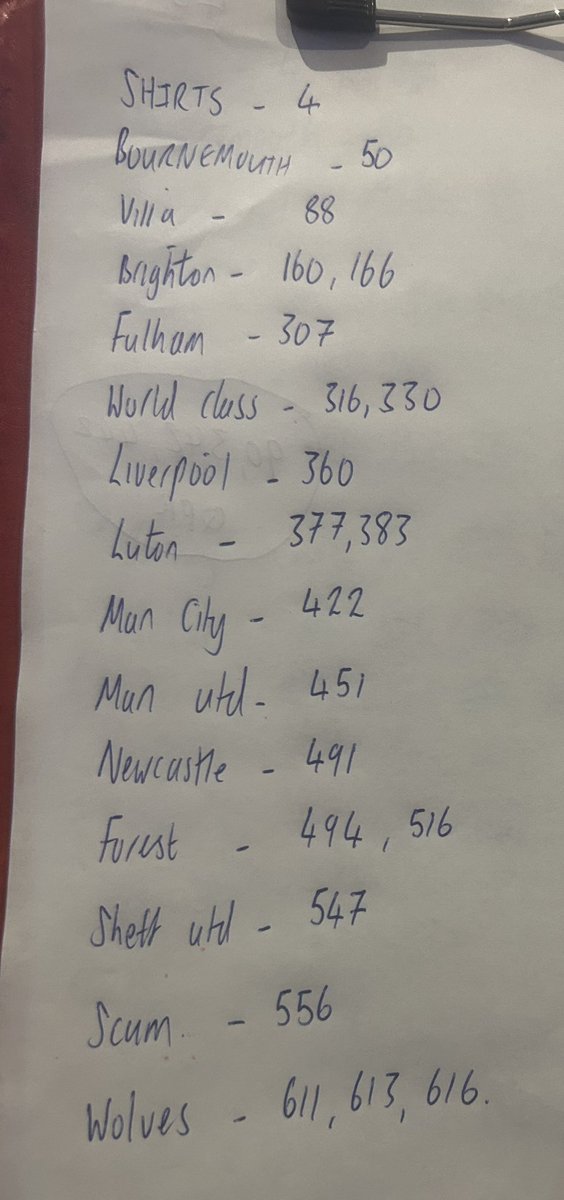 SHIRTS - 4
BOURNEMOUTH - 50
Villa - 88
Brighton - 160, 166
Fulham - 307
World class - 316, 330
Liverpool - 360
Luton - 377, 383
Man City - 422
Man utd - 451
Newcastle - 491
Forest - 494, 516
Sheff utd - 547
Scum. - 556
Wolves - 611, 613, 616.